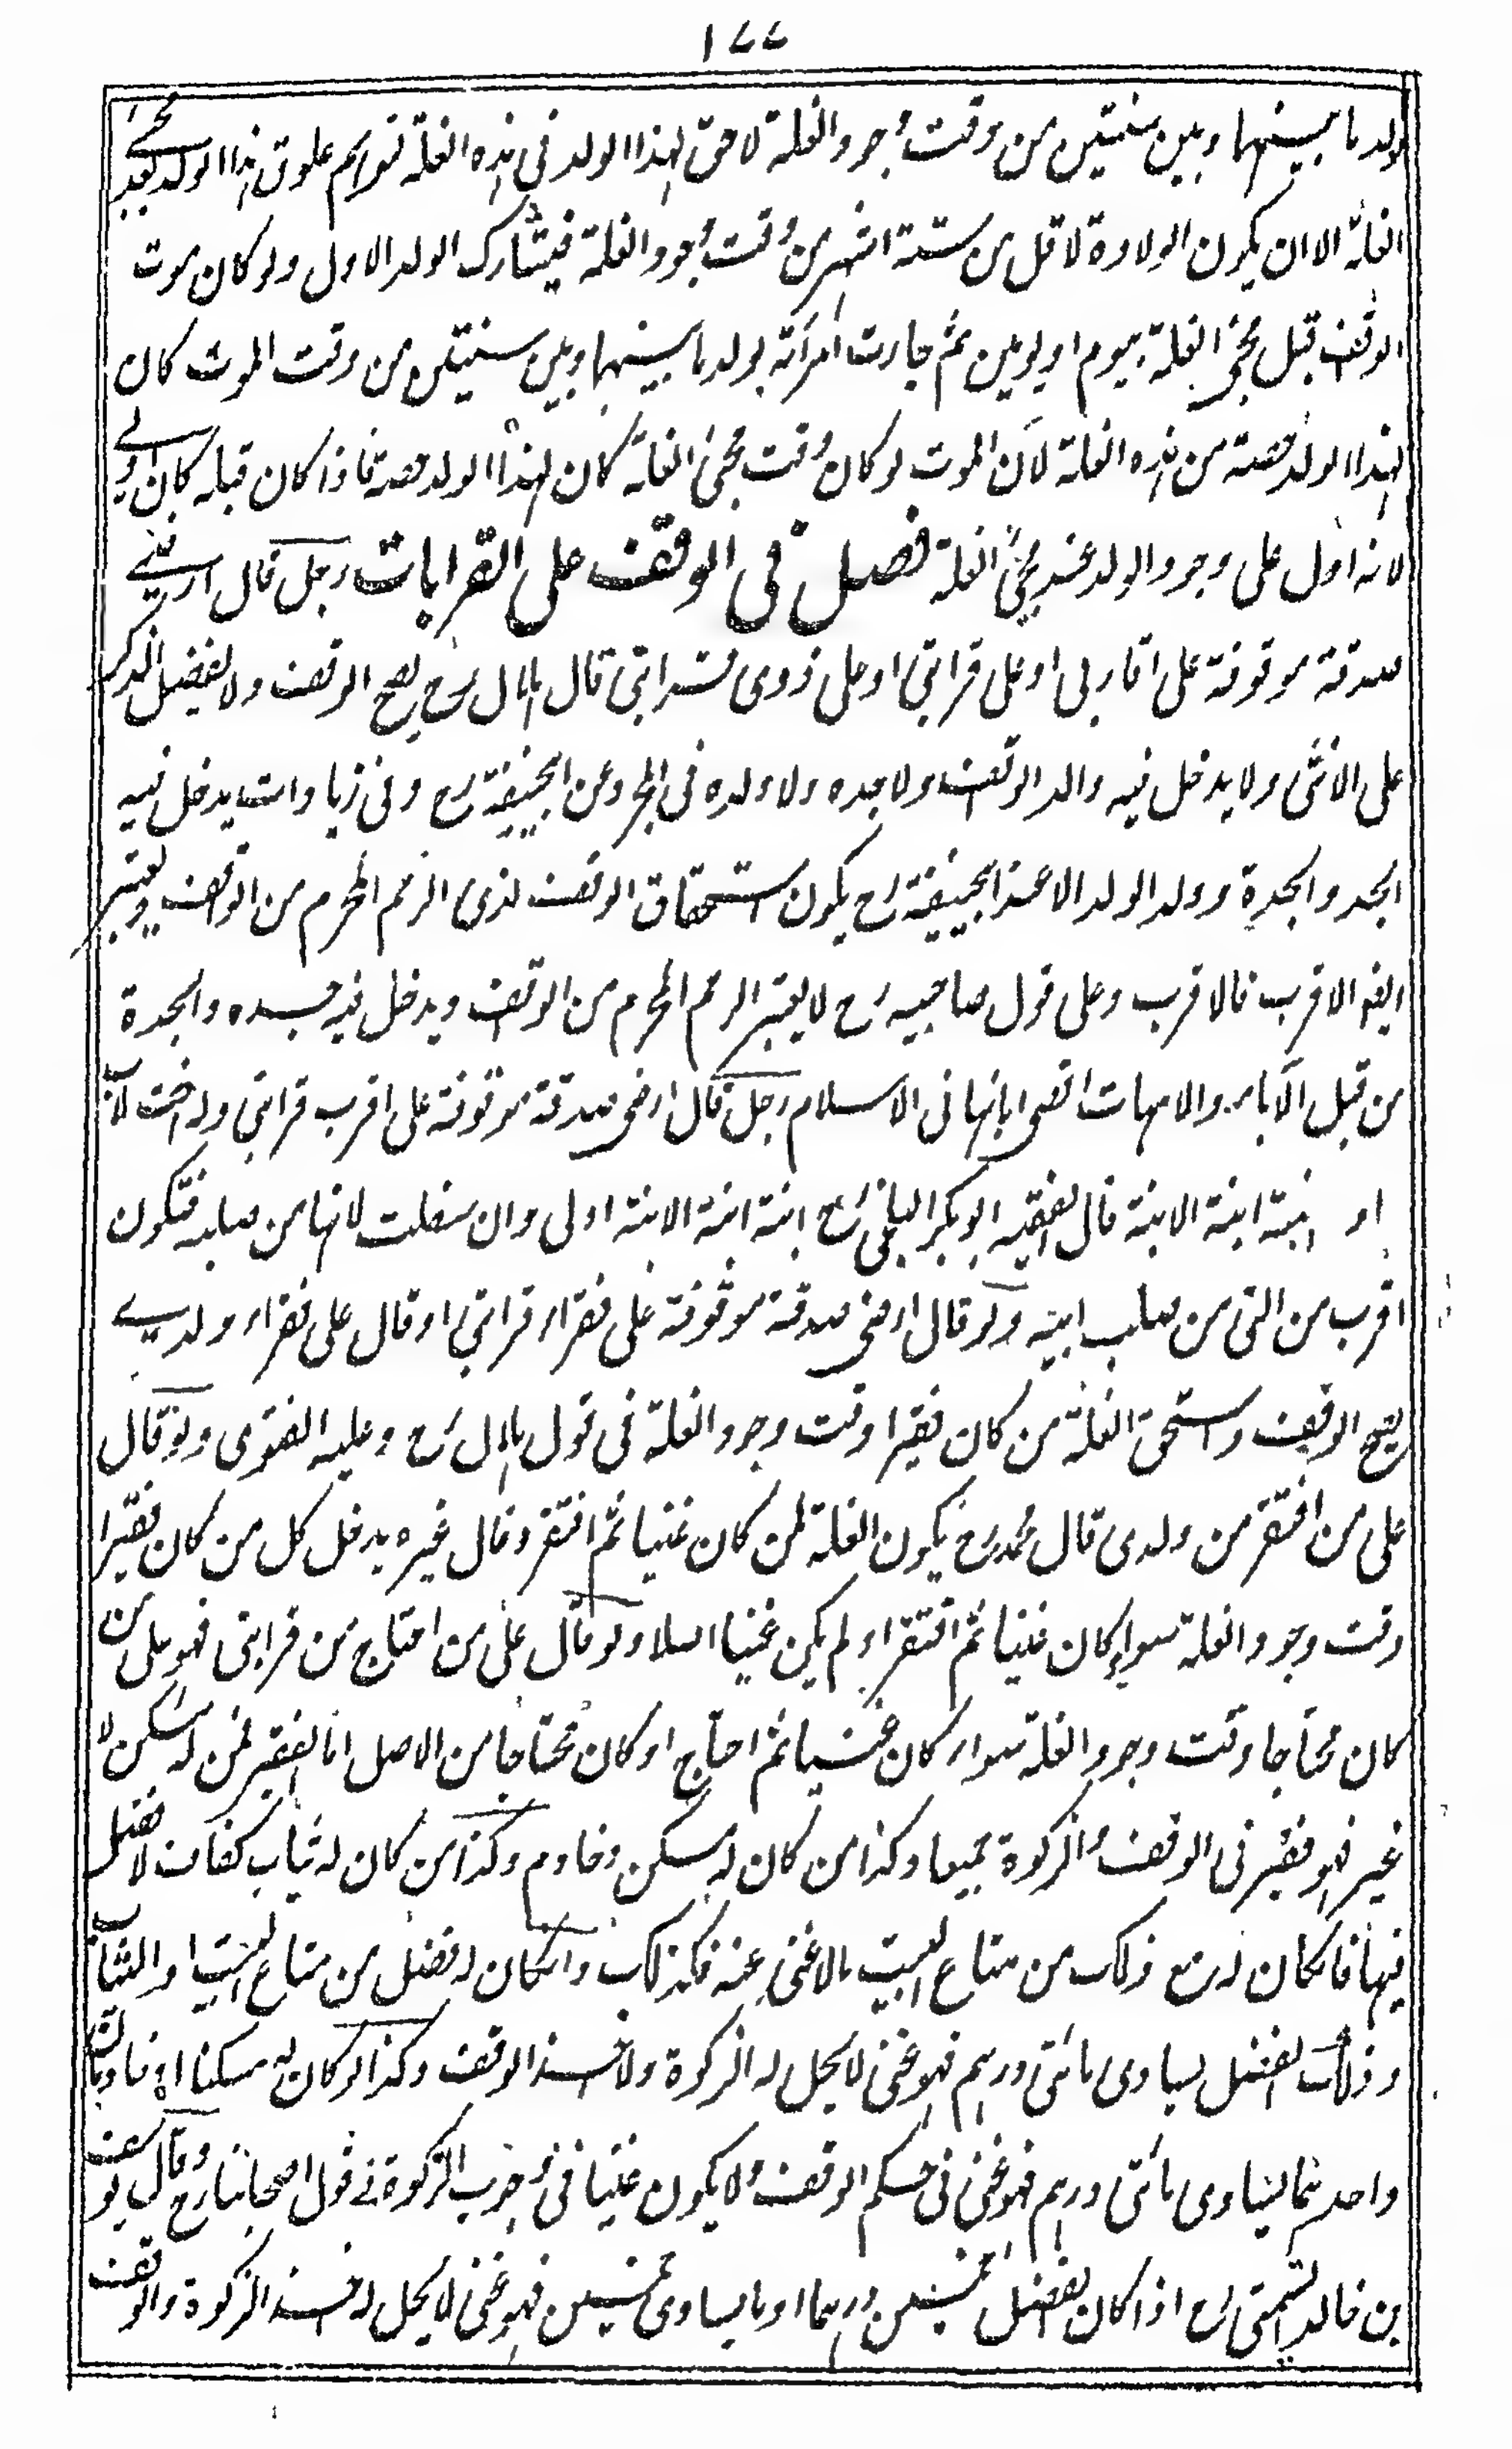 ١٧٧
بولد ما بينها وبين سنتين من وقت وجود الغلة لا حق لهذا الولد في هذه الغلة لتوهم علوق هذا الولد بعد مجئ
الغلة الا ان يكون الولادة لاقل من ستة اشهر من وقت وجود الغلة فيشارك الولد الاول ولو كان موت
الواقف قبل مجئ الغلة بيوم او يومين ثم جاءت امرأته بولد ما بينها وبين سنتين من وقت الموت كان
لهذا الولد حصة من هذه الغلة لان الموت لو كان وقت مجئ الغلة كان لهذا الولد حصة فاذا كان قبله كان اولى
لانه ادل على وجود الولد عند مجئ الغلة فصل في الوقف على القرابات رجل قال ارضي
صدقة موقوفة على اقاربي او على قرابتي او على ذوى قرابتي قال هلال رح يصح الوقف ولا يفضل الذكر
على الانثى ولا يدخل فيه والد الواقف ولا جده ولا ولده في المجرد عن ابيحنيفة رح وفي زيادات يدخل فيه
الجد والجدة وولد الولد الا عند ابيحنيفة رح يكون استحقاق الوقف لذى الرحم المحرم من الواقف ويعتبر
ايضا الاقرب فالاقرب وعلى قول صاحبيه رح لا يعتبر الرحم المحرم من الواقف ويدخل فيه جده والجدة
من قبل الآباء والامهات اقصى ابائها في الاسلام رجل قال ارضي صدقة موقوفة على اقرب قرابتي وله اخت لاب
او ابنة ابنة الابنة قال الفقيه ابو بكر البلخي رح ابنة ابنة الابنة اولى وان سفلت لانها من صلبه فتكون
اقرب من التي من صلب ابيه ولو قال ارضي صدقة موقوفة على فقراء قرابتي او قال على فقراء ولدي
يصح الوقف ويستحق الغلة من كان فقيرا وقت وجود الغلة في قول هلال رح وعليه الفتوى ولو قال
على من افتقر من ولدى قال محمد رح يكون الغلة لمن كان غنيا ثم افتقر وقال غيره يدخل كل من كان فقيرا
وقت وجود الغلة سواء كان غنيا ثم افتقر او لم يكن غنيا اصلا ولو قال على من احتاج من قرابتي فهو على من
كان محتاجا وقت وجود الغلة سواء كان غنيا ثم احتاج او كان محتاجا من الاصل اما الفقير فمن له مسكن لا
غير فهو فقير في الوقف والزكوة جميعا وكذا من كان له مسكن وخادم وكذا من كان له ثياب كفاف لا فضل
فيها فانكان له مع ذلك من متاع البيت مالا غنى عنه فكذلك وانكان له فضل من متاع البيت او الثياب
وذلك الفضل يساوى مائتي درهم فهو غني لا يحل له الزكوة ولا اخذ الوقف وكذا لو كان له مسكنان او خادمان
واحدهما يساوى مائتي درهم فهو غني في حكم الوقف ولا يكون غنيا في وجوب الزكوة في قول اصحابنا رح وقال يوسف
بن خالد السمتي رح اذا كان الفضل خمسين درهما او ما يساوى خمسين فهو غني لا يحل له اخذ الزكوة والوقف